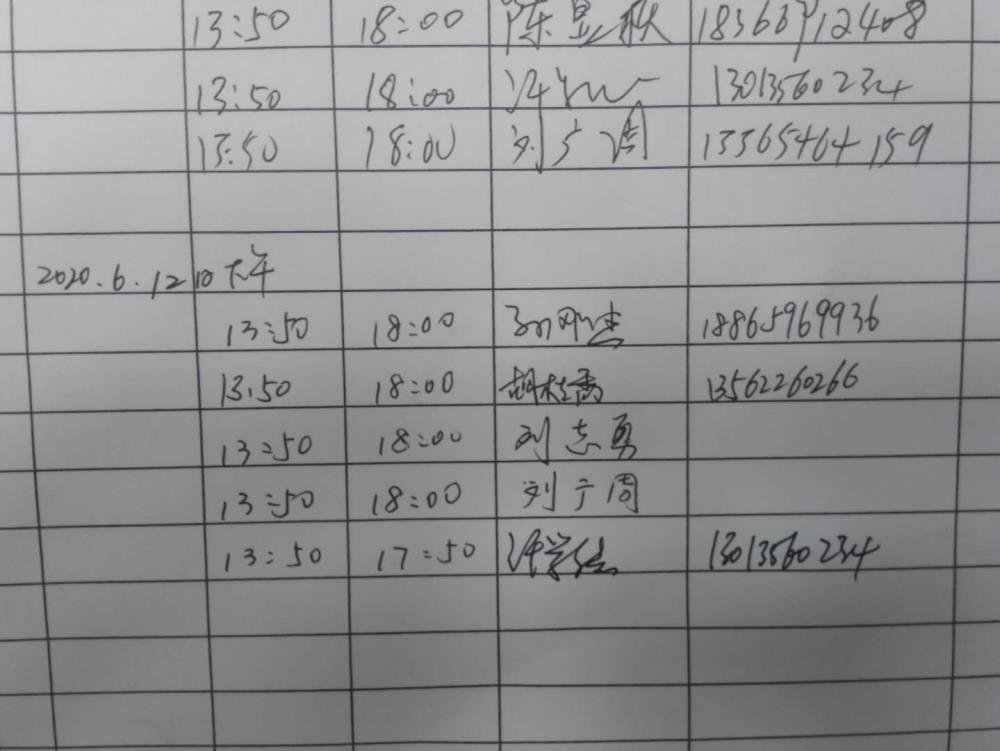 13:50 18:00 陈显秋 18366712408
13:50 18:00 13013560234
13:50 18:00 刘广周 13365464159
2020.6.12日下午
13:50 18:00 孙刚杰 18865969936
13:50 18:00 胡桂香 13562260266
13:50 18:00 刘志勇
13:50 18:00 刘广周
13:50 17:50 13013560234